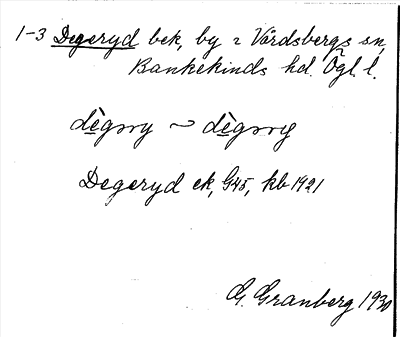 1-3 Degeryd bek, by i Vårdsbergs sn,
Bankekinds hd. Ögl. l.
dègrry ~ dègrry
Degeryd ek, G45, kb 1921
G. Granberg 1930